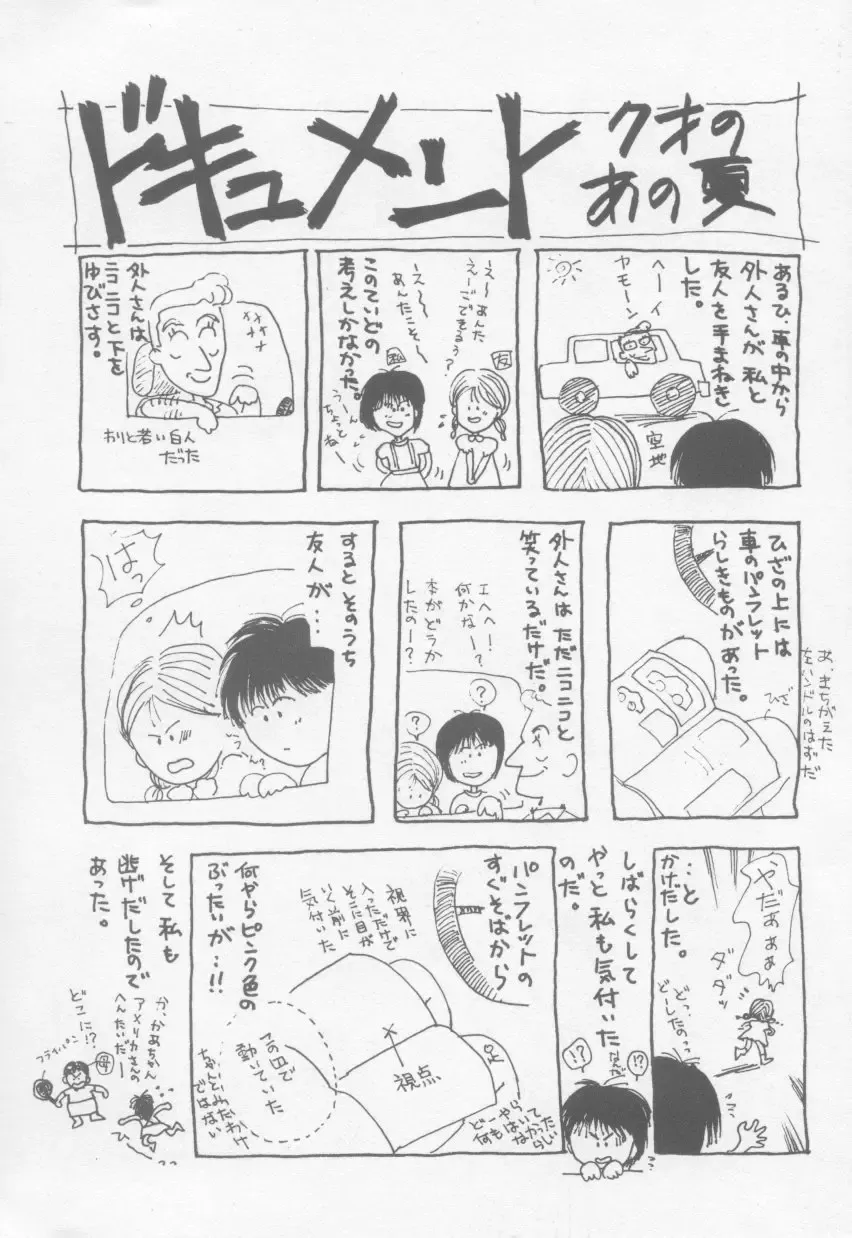 ドキュメント
クオの
あの夏
あるひ、車の中から
外人さんが私と
友人を手まねき
した。
ヘーイ
ヤモーン
空地
えーあんた
えーごできるぅ?
えーー
あんたこそー
このていどの
考えしかなかった。
友
私
うーん
ちょっと
ねー
外人さんは
ニコニコと下を
ゆびさす。
わりと若い白人
だった
ひざの上には
車のパンフレット
らしきものがあった。
ひざ
あ、きちがえた
左ハンドルのはずだ
外人さんはただニコニコと
笑っているだけだ。
エヘヘ!
何かなー?
本がどうか
したのー?
?
?
するとそのうち
友人が…
はっ
…と
かけだした。
やだぁぁぁ
ダダッ
どっ、
どーしたのっっ
しばらくして
やっと私も気付いた
のだ。
なんだ
!?
!?
パンフレットの
すぐそばから
何やらピンク色の
ぶったいが…!!
視界に
入っただけで
そこに目が
いく前に
気付いた
視点
この辺で
動いていた
ちゃんとみたわけ
ではない
どーやら
何もはいて
やはいなかった
らしい
そして私も
逃げだしたので
あった。
か、かあちゃん
アメリカさんの
へんたいだー
どこに!?
母
フライパン